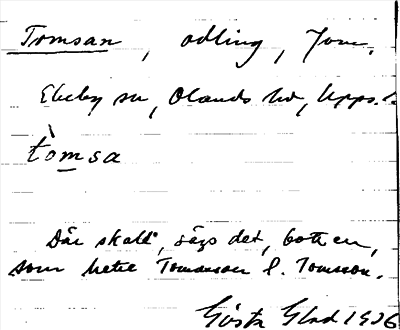 Tomsan, odling, Jom.
Ekeby sn, Olands hd, Upps. l.
tòmsa
Där skall, sägs det, bott en,
som hette Tomanson l. Tomsson.
Gösta Glad 1926